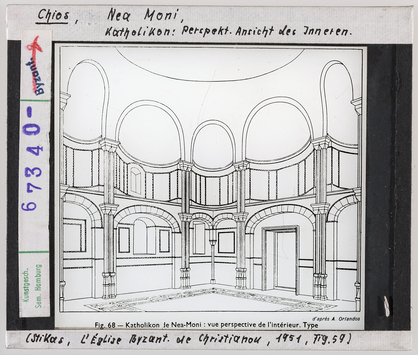 Chios, Nea Moni,
Katholikon: Perspekt. Ansicht des Inneren.
Byzant.
67340-
Kunstgesch.
Sem. Hamburg
d'après A. Orlandos
Fig. 68 — Katholikon Je Nea-Moni : vue perspective de l'intérieur. Type
(Stikas, L'Église Byzant. de Christianou, 1951, Fig. 59)